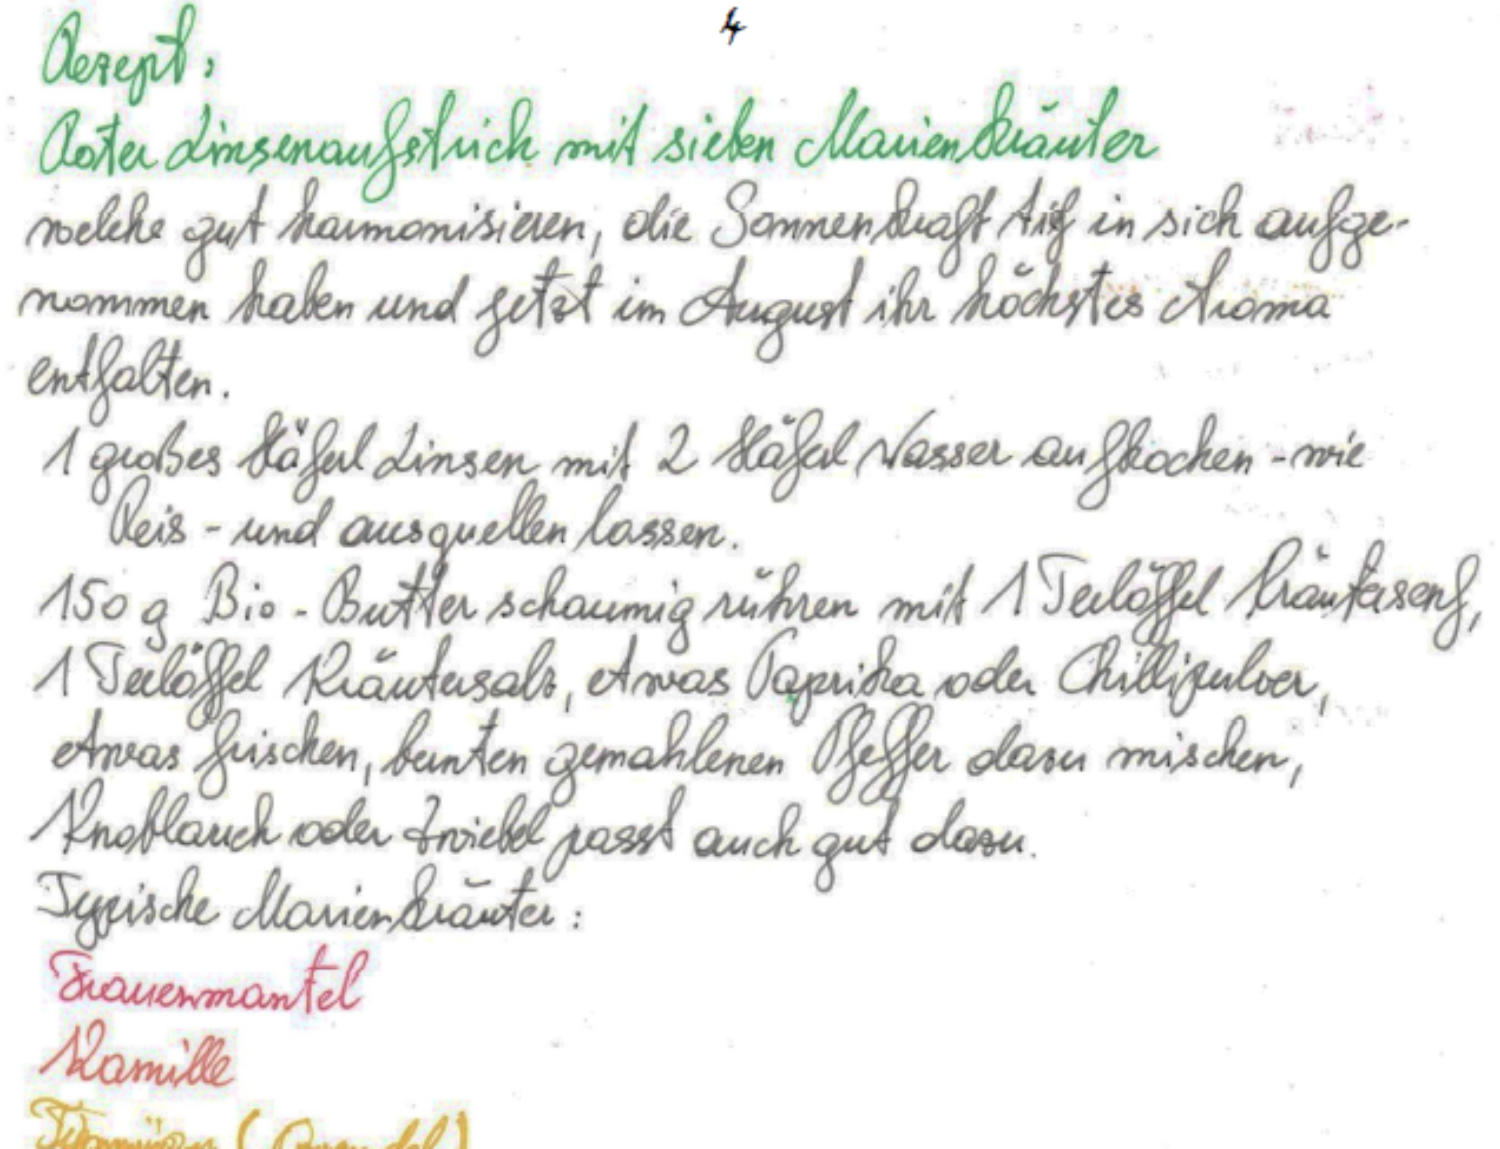 4
Rezept:
Roter Linsenaufstrich mit sieben Marienkräuter
welche gut harmonisieren, die Sonnenkraft tief in sich aufge-
nommen haben und jetzt im August ihr höchstes Aroma
entfalten.
1 großes Häferl Linsen mit 2 Häferl Wasser aufkochen - wie
Reis - und ausquellen lassen.
150 g Bio - Butter schaumig rühren mit 1 Teelöffel Kräutersenf,
1 Teelöffel Kräutersalz, etwas Paprika oder Chillipulver,
etwas frischen, bunten gemahlenen Pfeffer dazu mischen,
Knoblauch oder Zwiebel passt auch gut dazu.
Typische Marienkräuter:
Frauenmantel
Kamille
Thymian (Quendel)